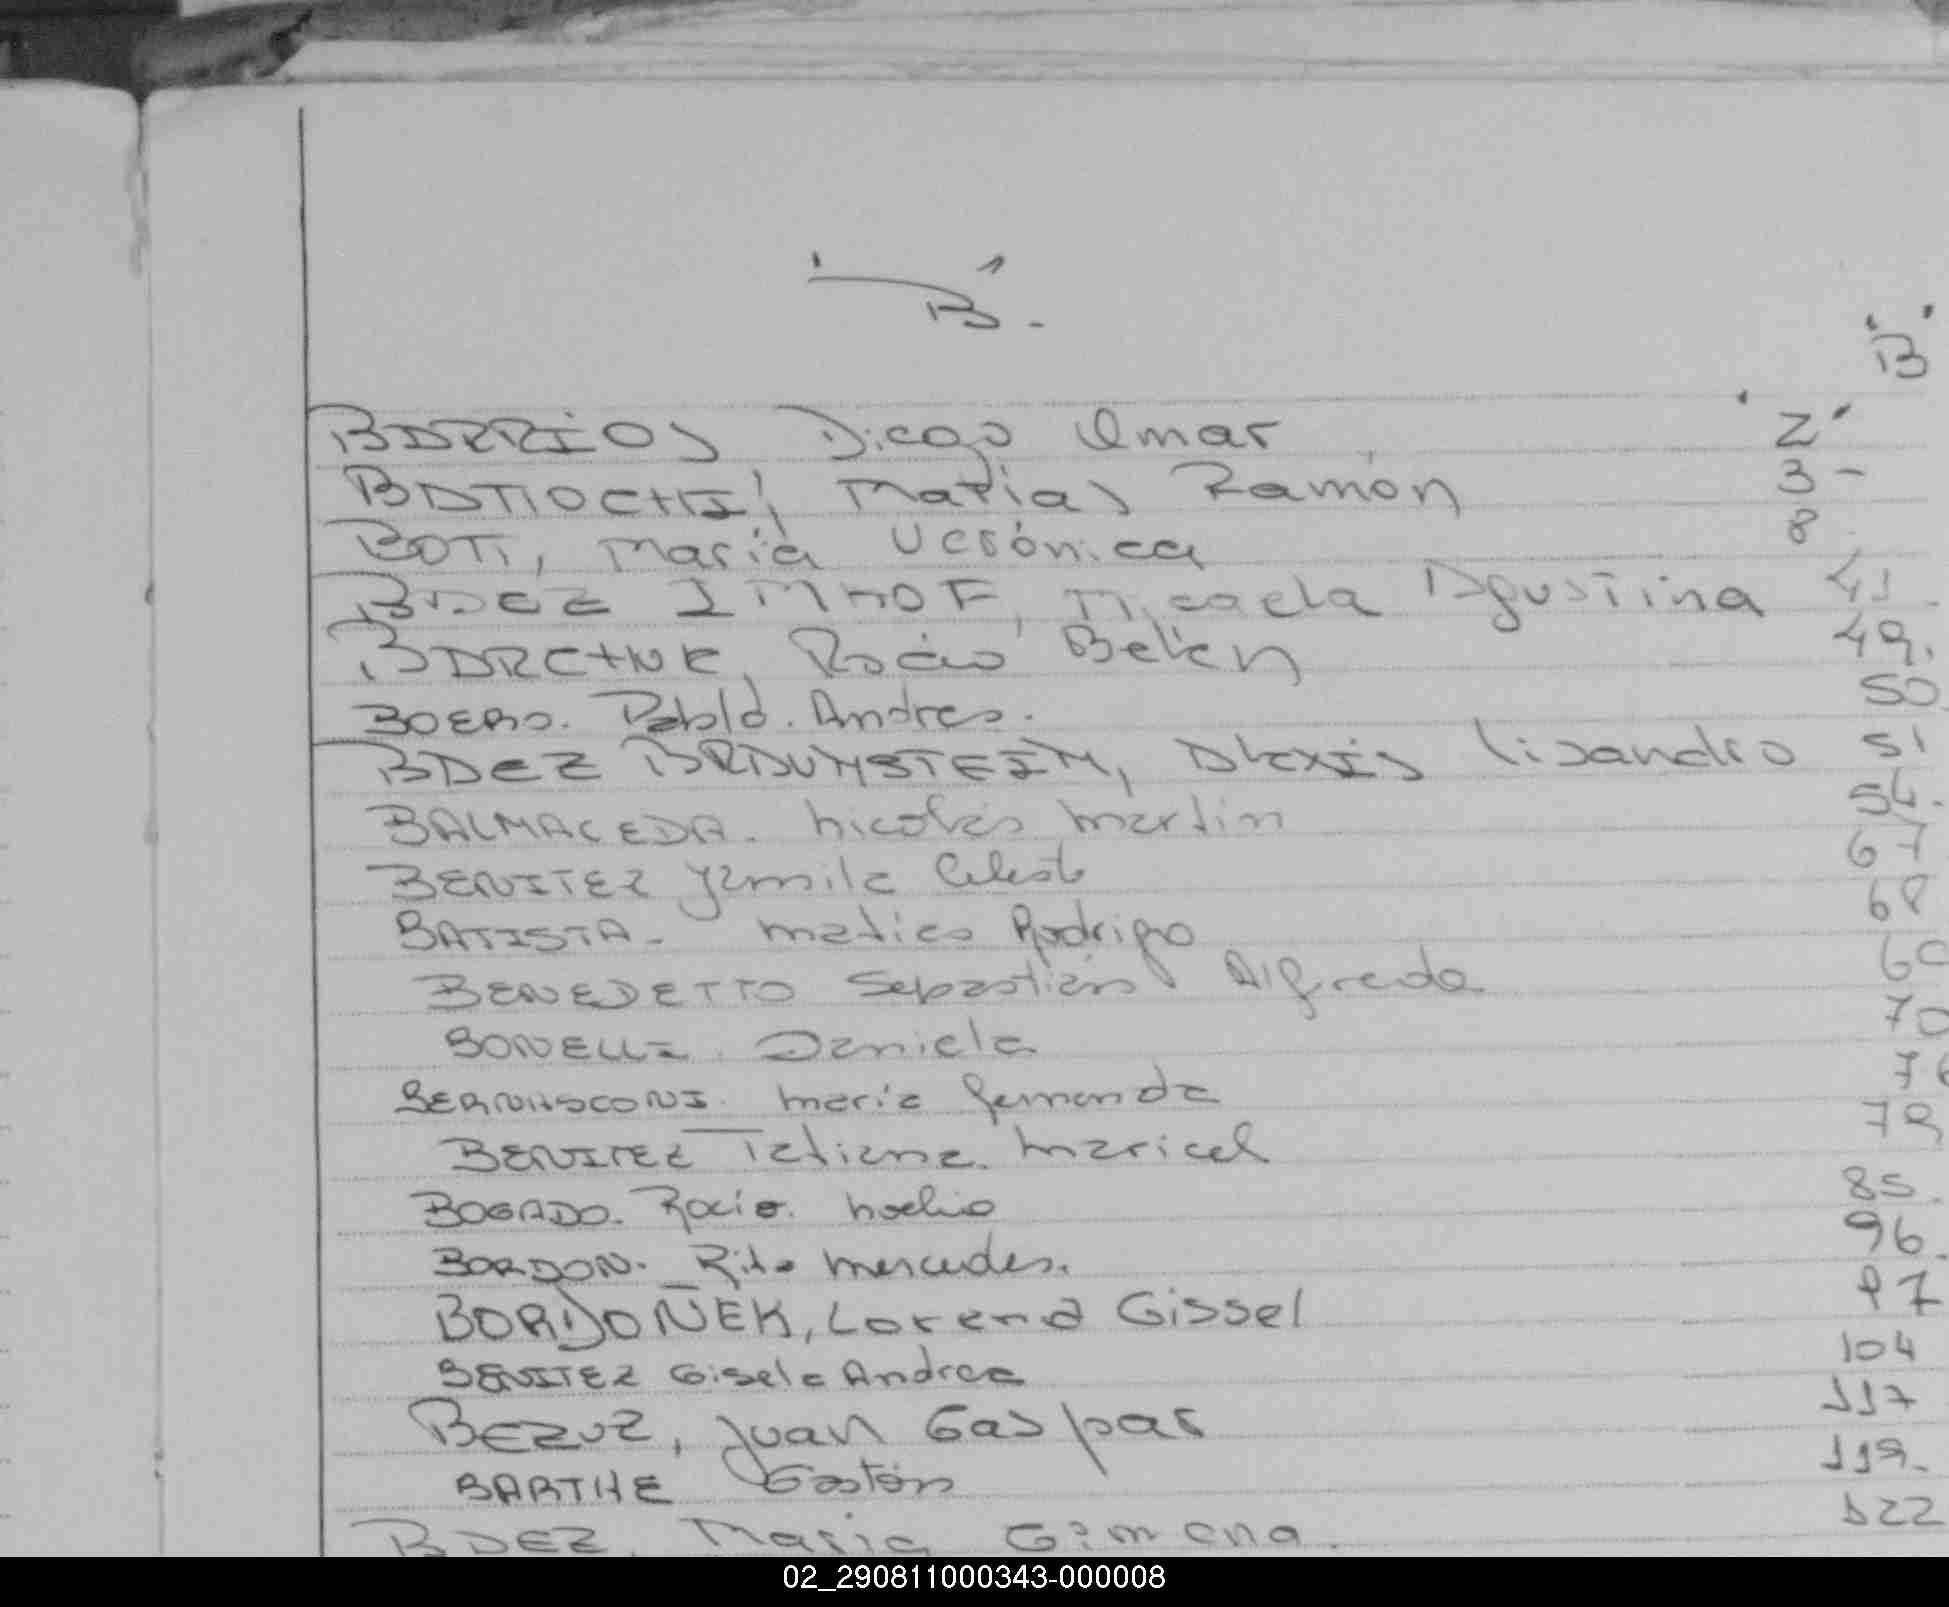 "B".
"B"
BARRIOS Diego Omar 2
BATTOCHI, Matias Ramón 3 -
BOTI, Maria Verónica 8
BAEZ IMHOF, Micaela Agustina 41.
Rocio Belén 49.
BOERO. Pablo. Andres. 50
BAEZ BRAUNSTEIN, Alexis Lisandro 51
BALMACEDA. Nicolás Martin 54.
BENITEZ Yamila Celeste 67
BATISTA - Matias Rodrigo 68
BENEDETTO Sebastián Alfredo 69
BONELLI. Daniela 70
BERNASCONI. Maria Fernanda 76
BENITEZ Tatiana. Maricel 79
BOGADO. Rocio. Noelia 85.
BORDON. Rita Mercedes. 96.
Lorena Gissel 97
BENITEZ Gisela Andrea 104
BEZUZ, Juan Gaspar 117
BARTHE Gastón 119.
BAEZ, Maria Gimena. 122
02_290811000343-000008